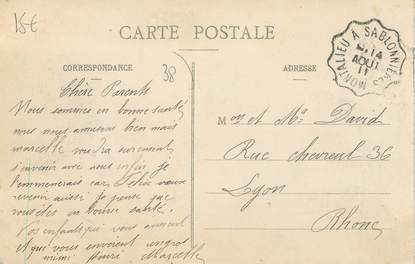 15€
CARTE POSTALE
MONTALIEU A SABLONNIERES
14
AOUT
11
CORRESPONDANCE
38
ADRESSE
Chers Parents
Nous sommes en bonne santé
nous nous amusons bien mais
marcelle voudra surement
s'en venir avec vous enfin je
l'emmenerais car
revenir aussi je pense que
vous êtes en bonne santé.
Vos enfants qui vous aiment
et qui vous envoient un gros
mimi Marcelle
Mon et Me David
Rue chevreul 36
Lyon
Rhone